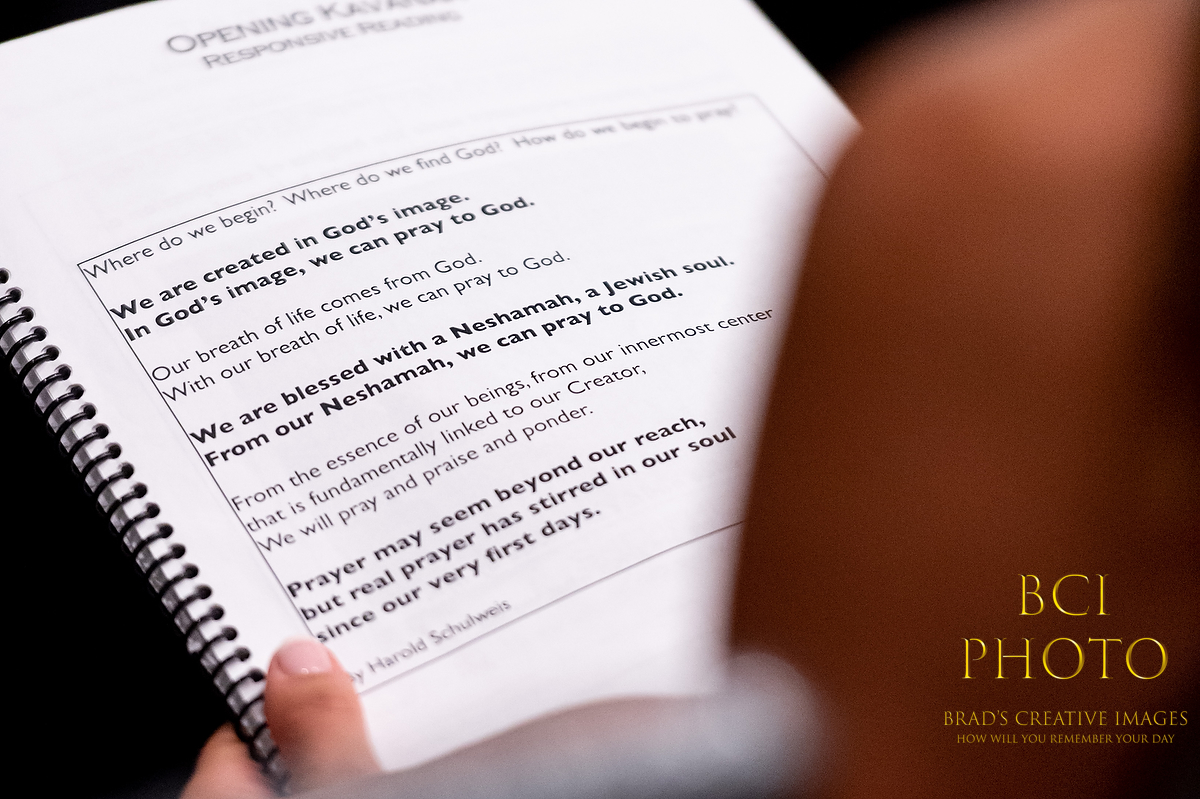 OPENING KAVANAH
RESPONSIVE READING
Where do we begin? Where do we find God? How do we begin to pray?
We are created in God's image.
In God's image, we can pray to God.
Our breath of life comes from God.
With our breath of life, we can pray to God.
We are blessed with a Neshamah, a Jewish soul.
From our Neshamah, we can pray to God.
From the essence of our beings, from our innermost center
that is fundamentally linked to our Creator,
We will pray and praise and ponder.
Prayer may seem beyond our reach,
but real prayer has stirred in our soul
since our very first days.
by Harold Schulweis
BCI
PHOTO
BRAD'S CREATIVE IMAGES
HOW WILL YOU REMEMBER YOUR DAY